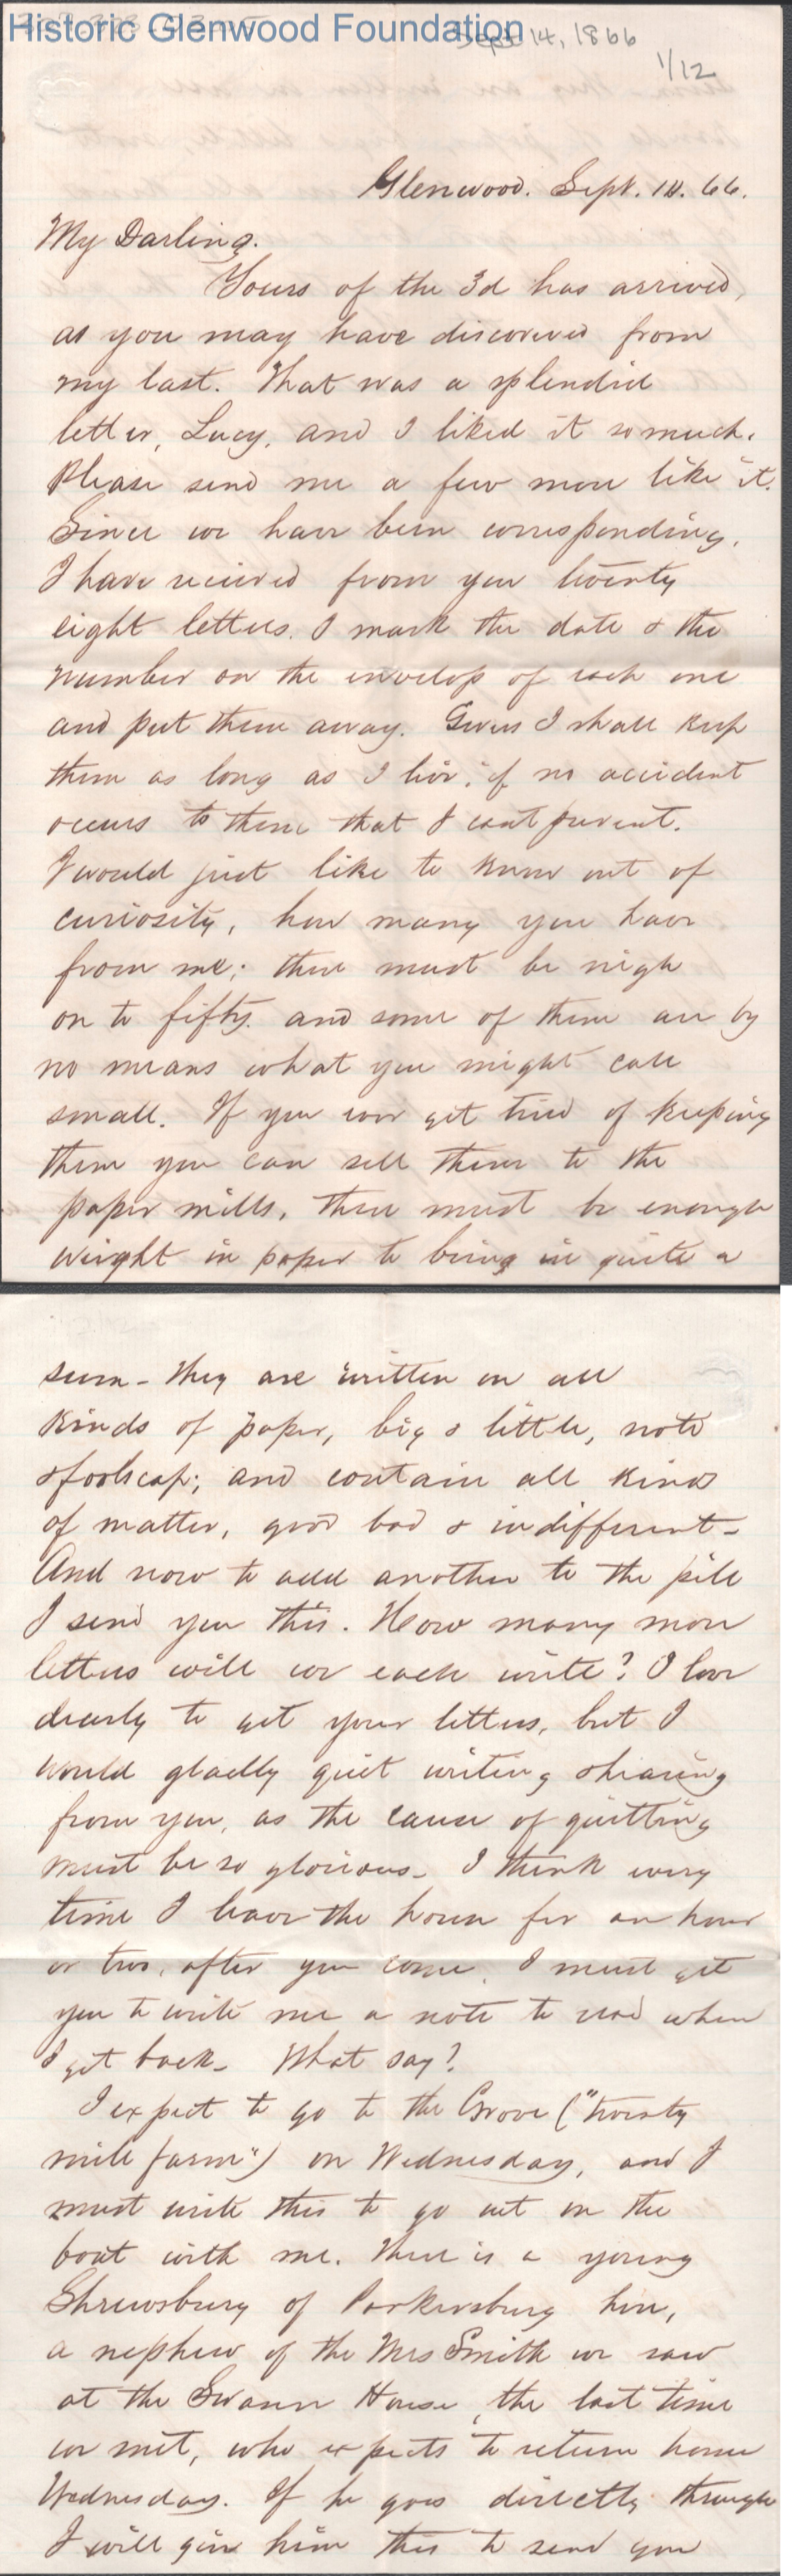 Historic Glenwood Foundation
Sept 14, 1866
1/12
Glenwood. Sept. 14. 66.
My Darling.
Yours of the 3d has arrived,
as you may have discovered from
my last. That was a splendid
letter, Lucy, and I liked it so much.
Please send me a few more like it.
Since we have been corresponding,
I have recieved from you twenty
eight letters. I mark the date & the
number on the envelop of each one
and put them away. Guess I shall keep
them as long as I live, if no accident
occurs to them that I cant prevent.
I would just like to know out of
curiosity, how many you have
from me; there must be nigh
on to fifty. and some of them are by
no means what you might call
small. If you ever get tired of keeping
them you can sell them to the
paper mills, there must be enough
weight in paper to bring in quite a
sum - they are written on all
kinds of paper, big & little, note
& foolscap; and contain all kinds
of matter, good bad & indifferent -
And now to add another to the pile
I send you this. How many more
letters will we each write? I love
dearly to get your letters, but I
would gladly quit writing & hearing
from you, as the cause of quitting
must be so glorious - I think every
time I leave the house for an hour
or two, after you come, I must get
you to write me a note to read when
I get back - What say?
I expect to go to the Grove ("twenty
mile farm") on Wednesday, and I
must write this to go out on the
boat with me. There is a young
Shrewsbury of Parkersburg here,
a nephew of the Mrs Smith we saw
at the Swann House, the last time
we met, who expects to return home
Wednesday. If he goes directly through
I will give him this to send you